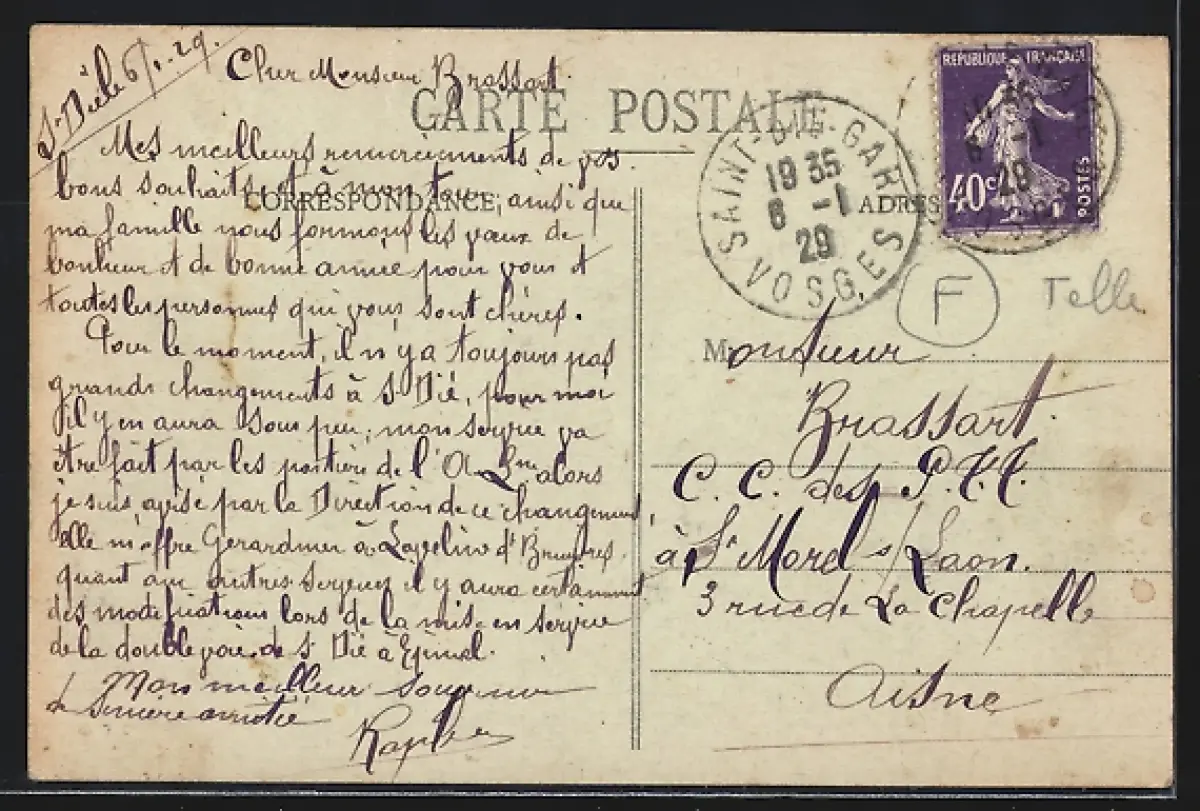 St Dié le 6/1. 29.
Cher Monsieur Brassart.
CARTE POSTALE
Mes meilleurs remerciements de vos
bons souhaits et à mon tour, ainsi que
CORRESPONDANCE
ma famille nous formons les vœux de
bonheur et de bonne année pour vous et
toutes les personnes qui vous sont chères.
Pour le moment, il n'y a toujours pas
grands changements à St Dié, pour moi
il y en aura sous peu, mon service va
être fait par les postiers de l' alors
je suis avisé par la Direction de ce changement,
elle m'offre Gerardmer à Laveline dt Bruyères.
quant aux autres services il y aura certainement
des modifications lors de la mise en service
de la double voie de St Dié à Epinal.
Mon meilleur souvenir
de sincère amitié
SAINT-DIÉ-GARE
19 35
6 -1
29
VOSGES
REPUBLIQUE FRANÇAISE
40c
POSTES
ADRES
F
Telle
Monsieur
Brassart.
C. C. des P.T.T.
à St Marcel s/ Laon.
3 rue de La Chapelle
Aisne